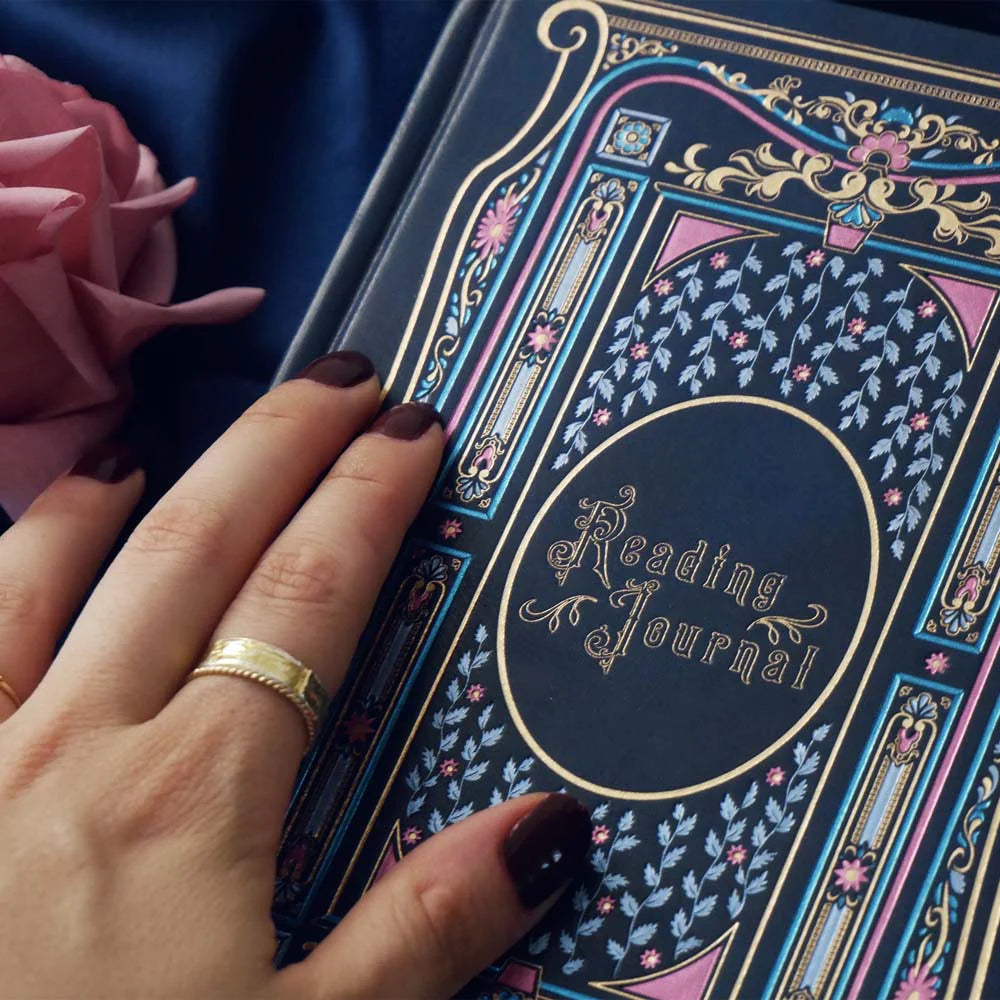 Reading
Journal